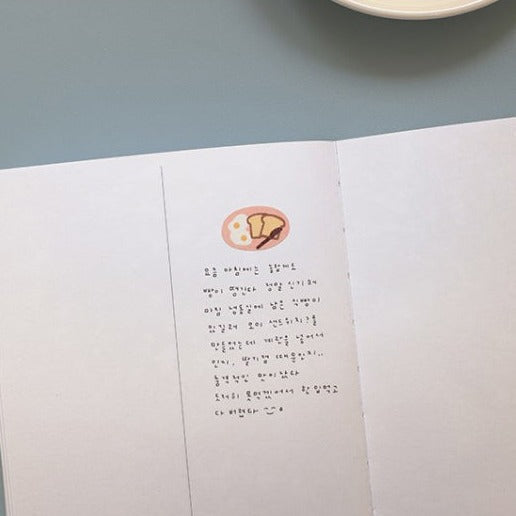 요즘 아침에는 놀랍게도
빵이 땡긴다 정말 신기해
마침 냉동실에 남은 식빵이
있길래 오이 샌드위치를
만들었는데 계란을 넣어서
인지, 딸기잼 때문인지..
충격적인 맛이 났다
도저히 못먹겠어서 한 입먹고
다 버렸다